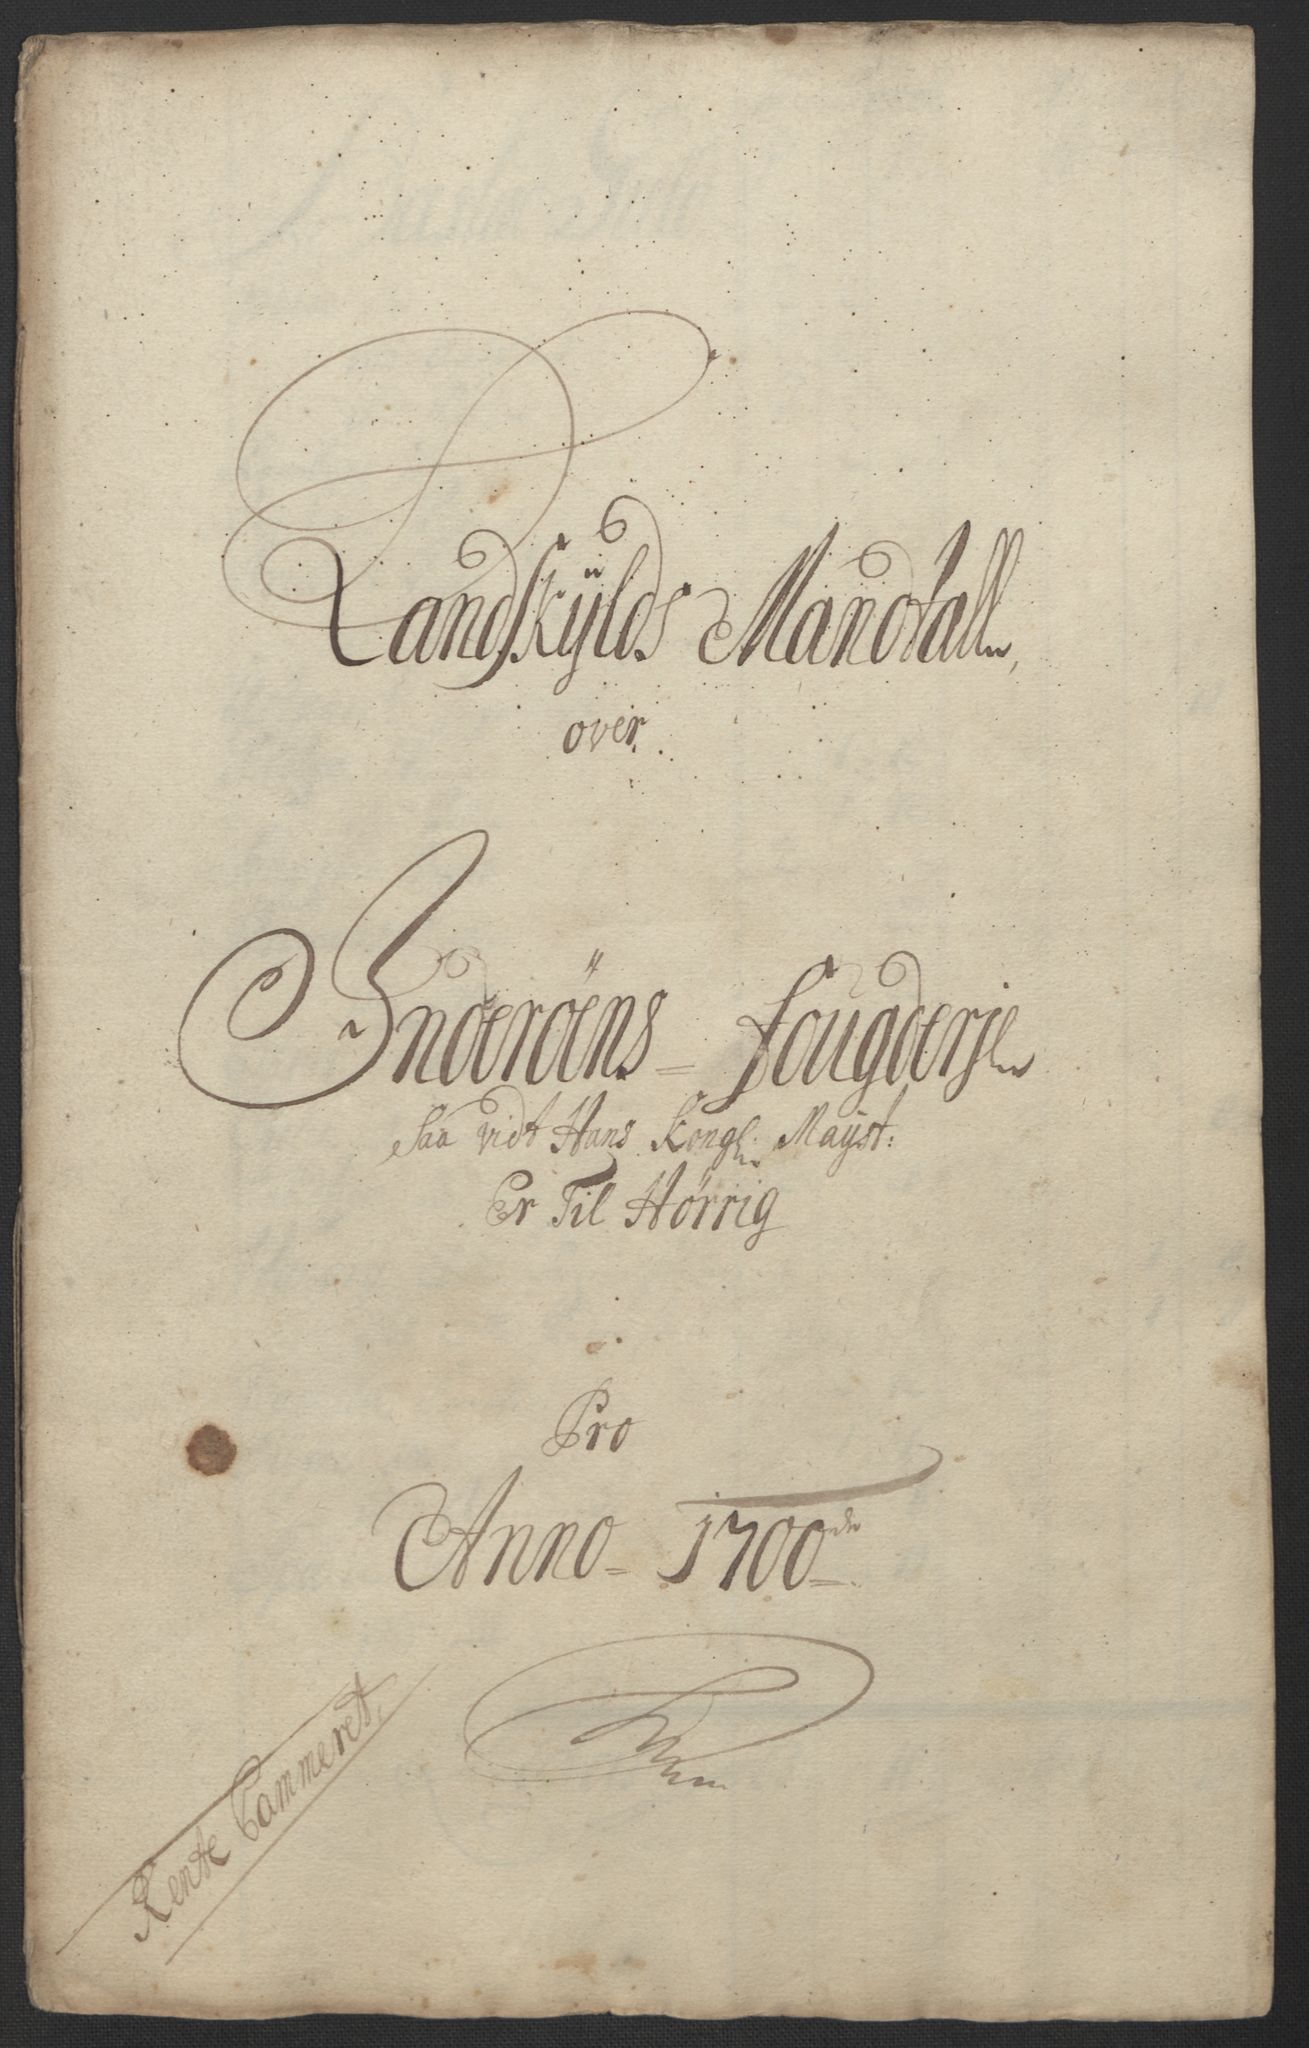 Landskÿlds Mandtall
over
Inderöens Fougderje
saa vidt Hans Kongl: Mayst:
Er Til Hørrig
Pro
Anno 1700
Rente Cammeret